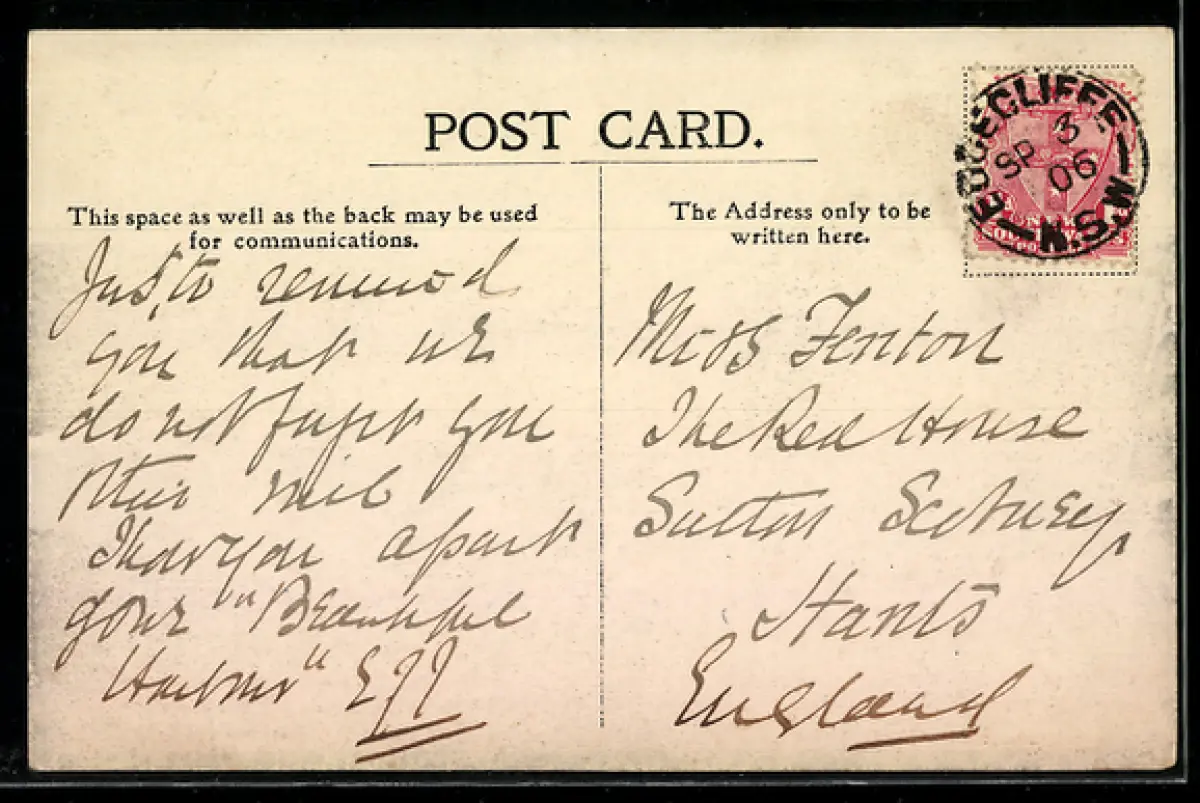 POST CARD.
This space as well as the back may be used
for communications.
The Address only to be
written here.
EDGECLIFFE
SP 3
06
N.S.W.
Just to remind
you that we
do not forget you
this will
you apart
your "Beautiful
Harbour" EJJ
Miss Fenton
The Red House
Sutton Scotney
Hants
England